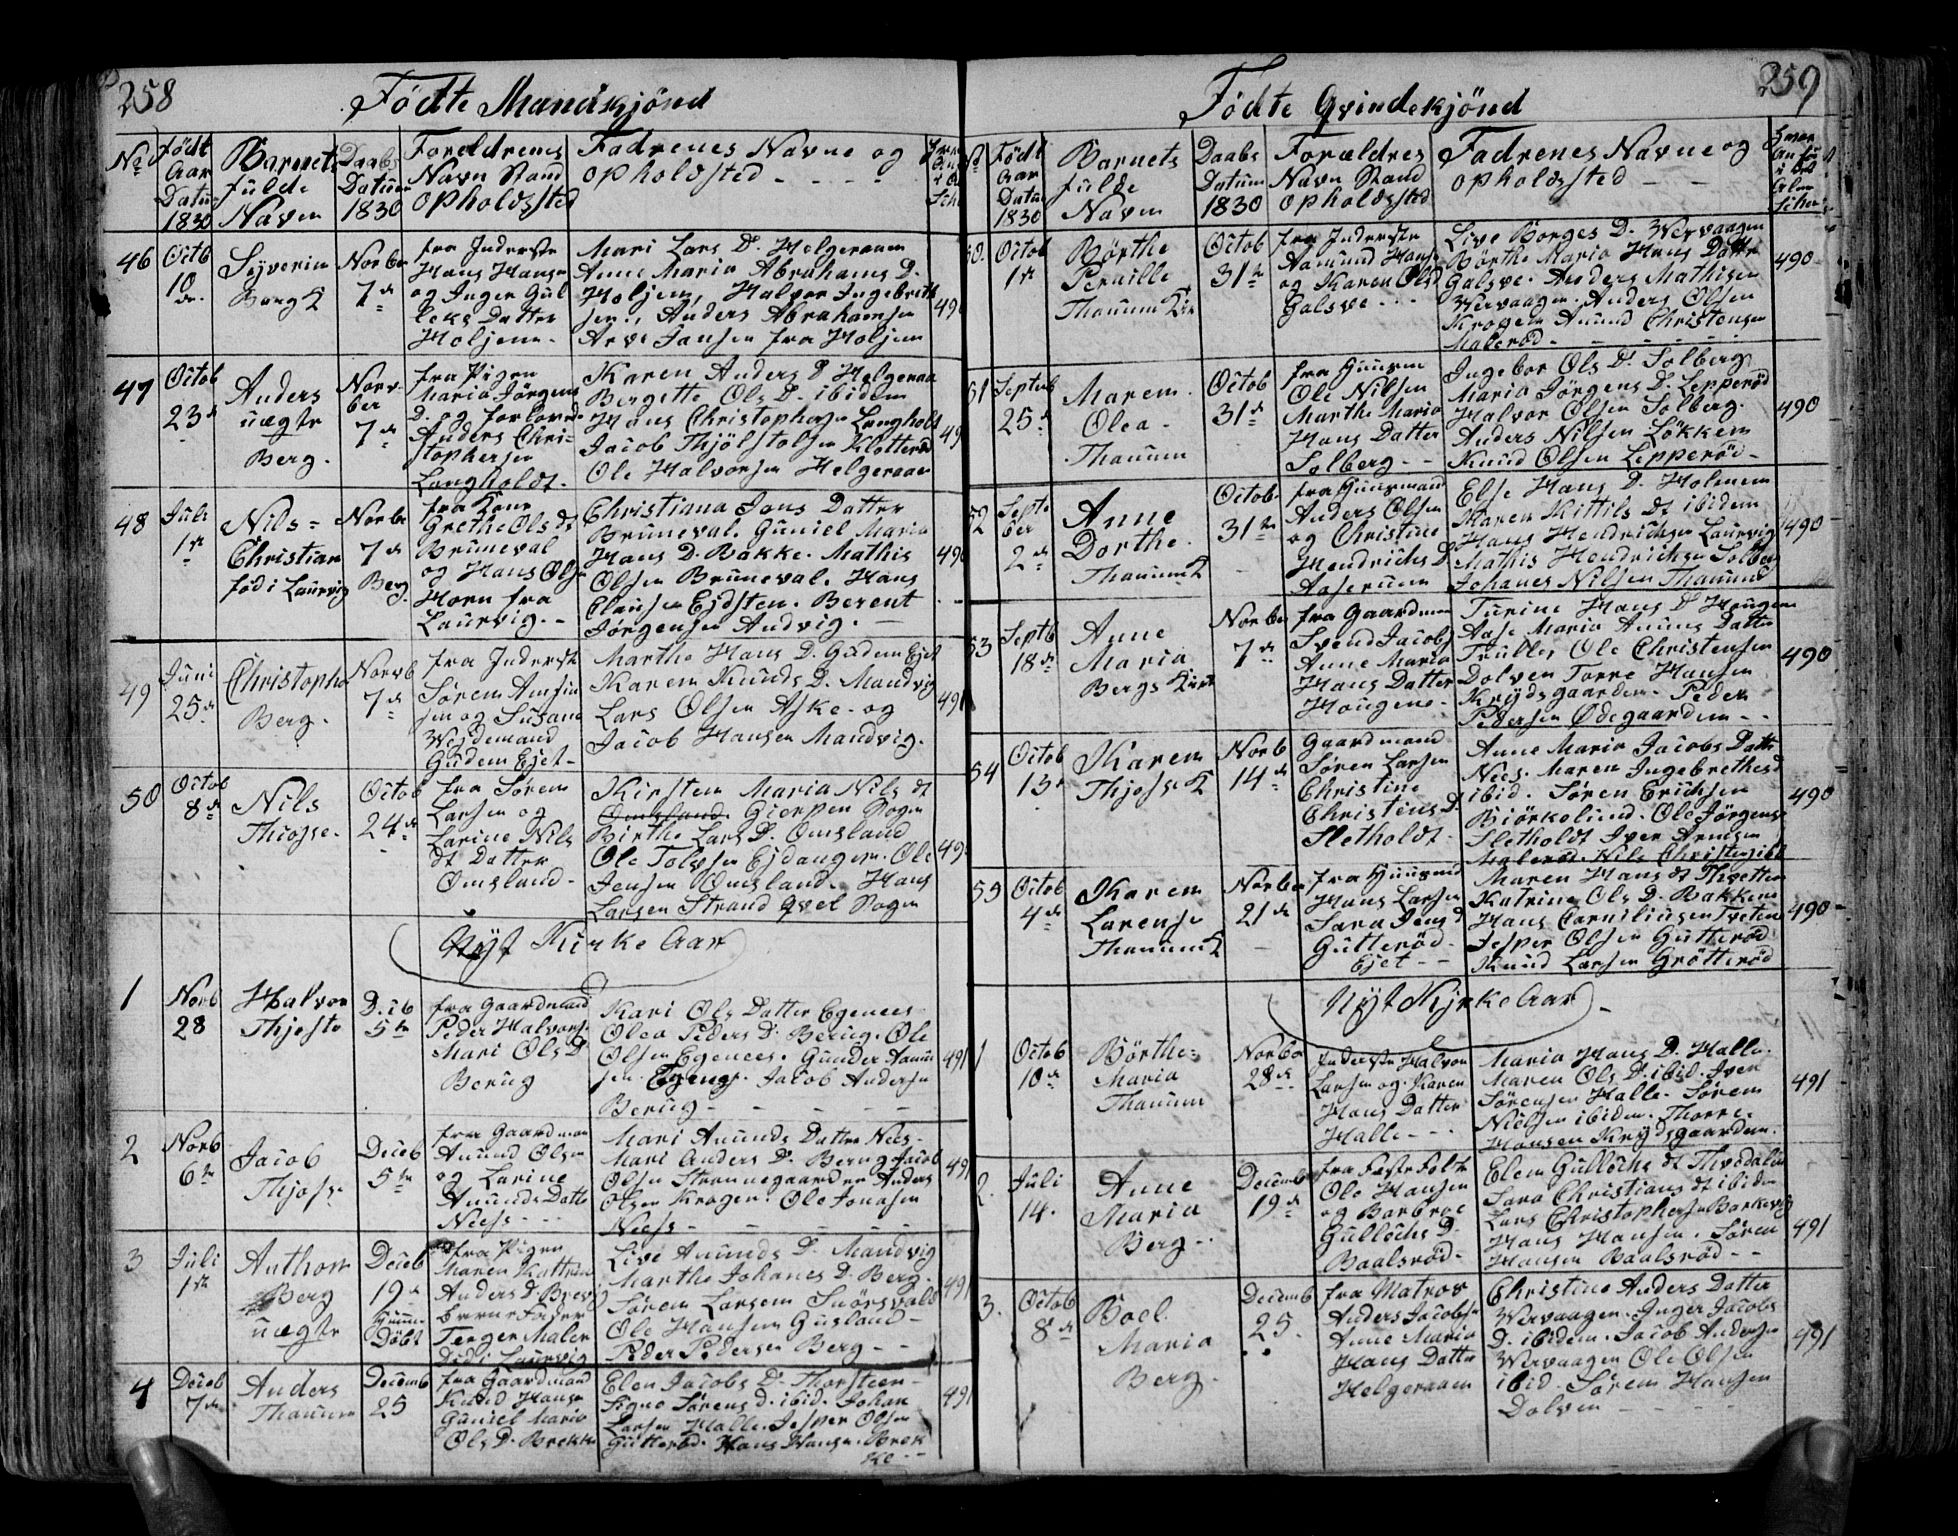 258
Födte Mandkjönd
No
Födt Aar Datum 1830
Barnets fulde Navn
Daabs Datum 1830
Foreldrenes Navn Stand Opholdssted
Fadrenes Navne og Opholdsted
46
Octb 10de
Syverin
Berg K
Norbr 7de
fra Inderste
Hans Hansen
og Inger Gul
leks Datter
Holjem
Mari Lars D. Helgeraaen
Anne Maria Abrahams D.
Holjem, Halvor Ingebreth
sen, Anders Abrahamsen
Arve Jansen fra Holjem
47
Octob 23d
Anders
uægte
Berg.
Norv-
ber
7de
fra Pigen
Maria Jörgens
D. og forlovede
Anders Chri=
stophersen
Langholdt.
Karen Anders D Helgeraa
Bergette Ols D. ibidem
Hans Christophersen Langholt
Jacob Thjölstolsen Klotteröd
Ole Halvorsen Helgeraaen
48
Juli 1ste
Nils=
Christian
föd i Laurvig
Norbr
7de
Berg
fra Kone
Grethe Ols dt
Bruneval
og Hans Olsen
Horn fra
Laurvig.
Christiana Jans Datter
Bruneval. Guniel Maria
Hans D. Bakke. Mathis
Olsen Bruneval. Hans
Clausen Ejdsten. Berent
Jörgensen Andvig.
49
Juni 25de
Christopher
Berg.
Norvb 7de
fra Inderste
Sören Amsin
sen og Susane
Wejdemand
Gudem Ejet
Marthe Hans D. Gudem Ejet
Karen Knuds D. Mandvig
Lars Olsen Aske. og
Jacob Hansen Mandvig.
50
Octob 8de
Nils
Thiosse.
Octob 24de
fra Sören
Larsen og
Larine Nils
dt Datter
Omsland
Kirsten Maria Nils dt
Omsland Gierpen Sogn
Birthe Lars D. Omsland
Ole Tolvsen Ejdanger. Ole
Jensen Omsland. Hans
Larsen Strand Qvel Sogn
Nyt Kirke Aar
1
Norb 28
Halvor
Thjoste
Decb 5te
fra Gaardmand
Peder Halvors.
Mari Ols D
Berug
Kari Ols Datter Egenees
Olea Peders D. Berug. Ole
Olsen Egenees. Gunder Aamun
sen Egenes. Jacob Andersen
Berug
491
2
Norb 6te
Jacob
Thjosse
Deceb 5te
fra Gaardman
Anund Olsen
og Larine
Anunds Datte
Nees
Mari Anunds Datter Nees
Mari Anders D. Berug Jacob
Olsen Strannegaarden Anders
Olsen Kroger. Ole Jonasen
Nees
491
3
Juli 1ste
Anthon
Berg
uægte
Deceb 19de
Hiemme
Döbt
fra Pigen
Maren Kattrine
Anders D. Brevig
Barne Fader
Terger Maler
Dids Laurvig
Live Anunds D. Mandvig
Marthe Johanes D. Berg.
Sören Larsen Snörsvald
Ole Hansen Gusland
Peder Pedersen Berg
491
4
Deceb 7de
Anders
Thanum
Decemb 25
fra Gaardmand
Knud Hansen
Guniel Maria
Ols D. Brekke
Elen Jacobs D. Thorsteen
Signe Sörens D. ibid. Johan
Larsen Halle. Jesper Olsen
Gutteröd. Hans Hansen. Brek
ke
491
259
Födte Qvindekjönd
No
Födt Aar Datum 1830
Barnets fulde Navn
Daabs Datum 1830
Forældres Navn Stand Opholdssted
Fadrenes Navne og Opholdssted
50.
Octob 1ste
Börthe
Pernille
Thanum Kir
Octob 31te
fra Inderste
Aamund Hans
og Karen Olsd
Galsve
Live Borges D. Wervaagen
Börthe Maria Hans Datter
Galsve. Anders Mathisen
Wervaagen. Anders Olsen
Krogen Anund Christensen
Maleröd
490
51
Septeb 25de
Maren
Olea
Thanum
Octob 31de
fra Huusm
Ole Nilsen
Marthe Maria
Hans Datter
Solberg
Ingebor Ols D. Solberg
Maria Jörgens D. Lepperöd
Halvor Olsen Solberg.
Anders Nilsen Lökken
Knud Olsen Lepperöd
490
52
Septe
ber
2de
Anne
Dorthe.
Thanum K
Octob 31te
fra Huusmand
Anders Olsen
og Christine
Hendrichs D
Aaserum
Else Hans D. Holmen
Maren Kittils dt ibidem
Hans Hendrichsen Laurvig
Mathis Hendrichsen Solberg
Johanes Nilsen Thanum
490
53
Septb 18de
Anne
Maria
Bergs Kirk
Norbr 7de
fra Gaardman
Svend Jacobs
Anne Maria
Hans Datter
Hougene
Turine Hans D Hougen
Aase Maria Anuns Datter
Trulles, Ole Christensen
Dolven Torre Hansen
Krydsgaarden. Peder
Pedersen Ödegaarden
490
54
Octob 13de
Karen
Thjosse K
Norb 14de
Gaardmand
Sören Larsen
Christine
Christens D.
Sletholdt
Anne Maria Jacobs Datte
Nees. Maren Ingebrethesd
ibid. Sören Erichsen
Biörkelund. Ole Jörgens
Sletholdt Iver Arnesen
Maleröd. Nils Christens ibid
490
55
Octob 4de
Karen
Larense
Thanum K
Norber 21de
fra Huusmd
Hans Larsen
Sara Jens d
Gutteröd
Ejet
Maren Hans dt Thvetten
Katrine Ols D. Bakken
Hans Corneliusen Tveten
Jesper Olsen Gutteröd
Knud Larsen Grötteröd
490
Nyt Kirke Aar
1
Octob 10de
Börthe
Maria
Thanum
Norber 28de
Inderste Halvor
Larsen og Karen
Hans Datter
Halle
Maria Hans D. Halle.
Maren Ols D. ibid. Iver
Sörensen Halle. Sören
Nielsen ibidem. Thorre.
Hansen Krydsgaarden.
491
2.
Juli 14.
Anne
Maria
Berg
Decemb 19de
fra Faste Folk
Ole Hansen
og Barbroe
Gullöchs D.
Baalsröd
Elen Gullöchs dt Thvedalen
Sara Christians dt ibidem
Lars Christophersen Barkevig
Hans Hansen. Sören
Hansen Baalsröd
491
3.
Octob 8de
Boel
Maria
Berg.
Decemb 25.
fra Matros
Anders Jacobsen
Anne Maria
Hans Datter
Helgeraaen
Christine Anders Datter
Wervaagen. Inger Jacobs
D. ibidem. Jacob Andersen
Wervaagen Ole Olsen
ibid. Sören Hansen
Dolven
491